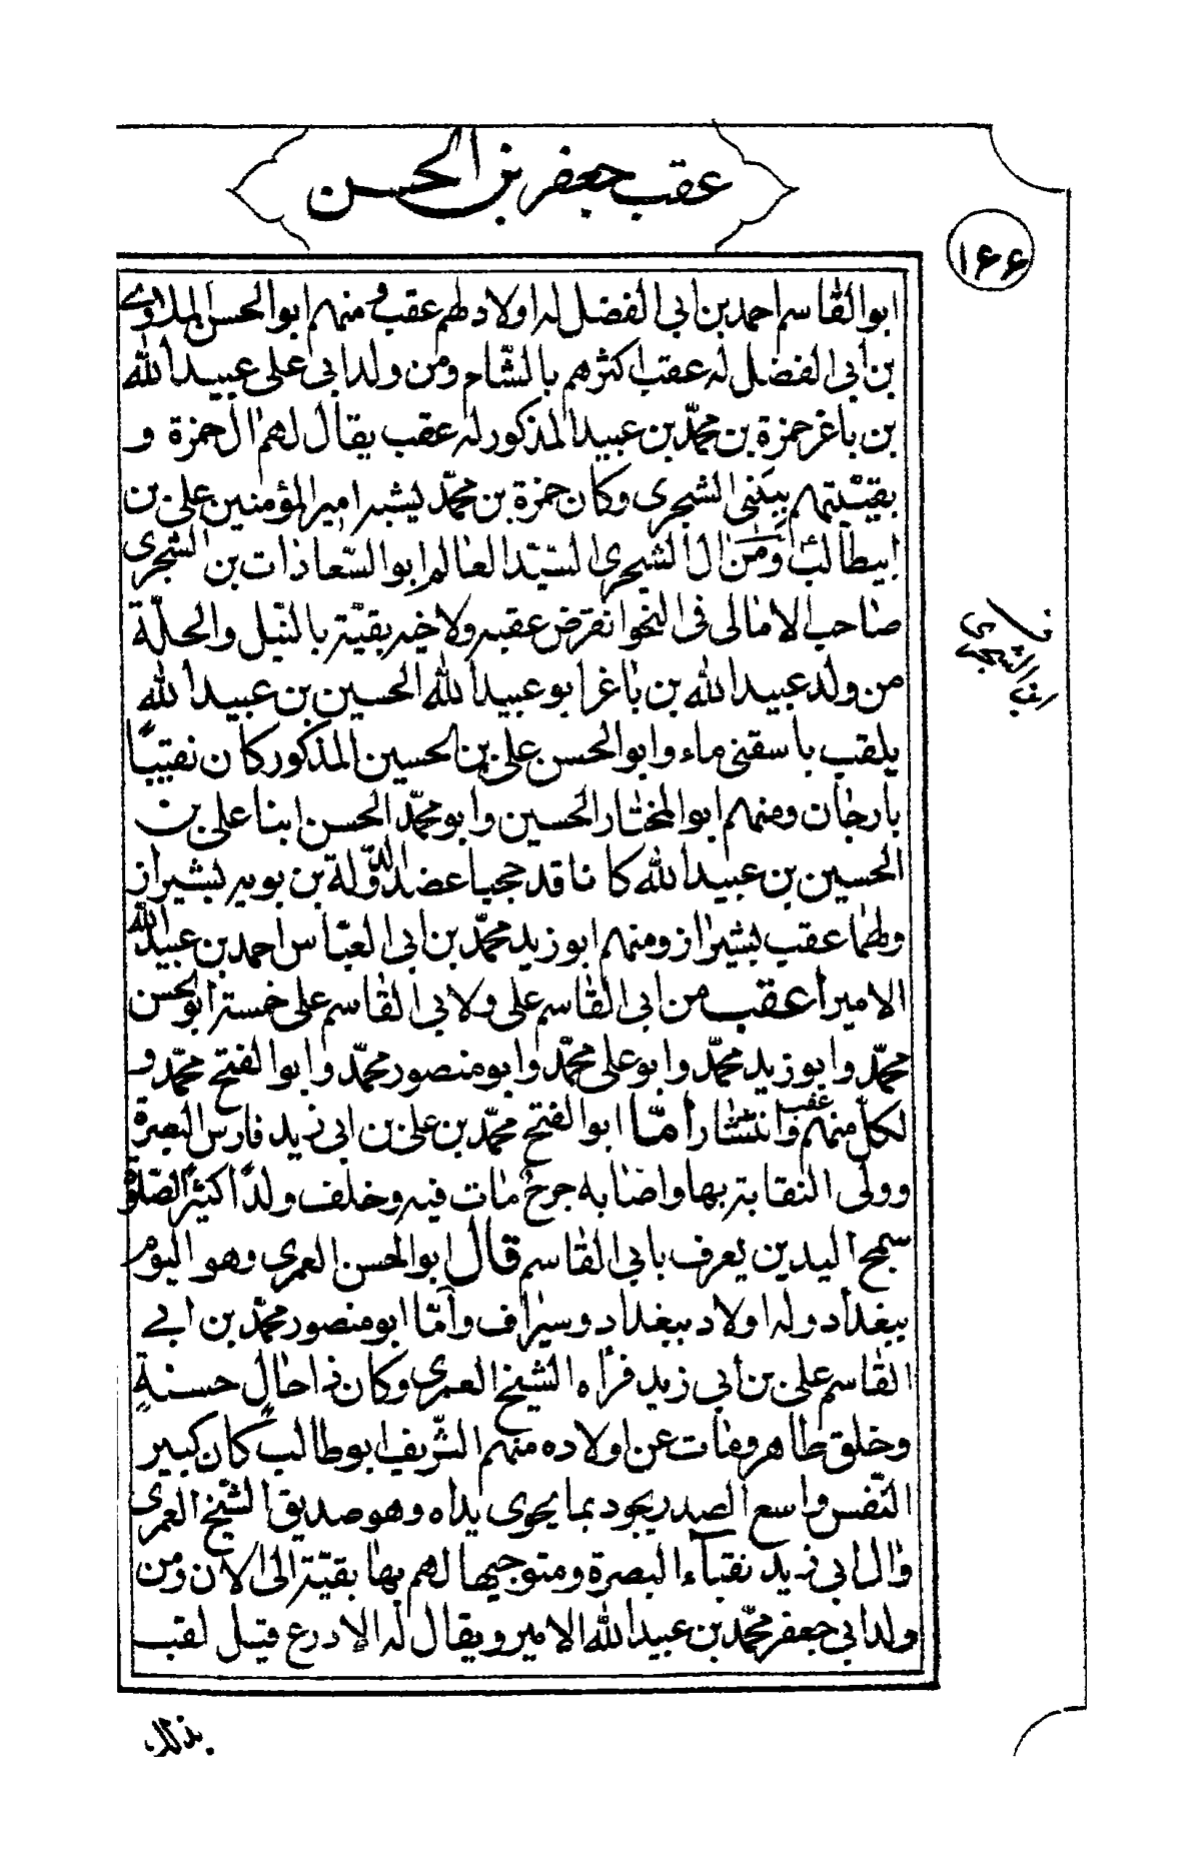 عقب جعفر بن الحسن
۱۶۶
ابو القاسم احمد بن ابي الفضل له اولاد لهم عقب و منهم ابو الحسن
بن ابي الفضل له عقب اكثرهم بالشام ومن ولد ابى على عبيد الله
بن باغر حمزة بن محمّد بن عبيد المذكور له عقب يقال لهم ال حمزة و
بقيّتهم ببنى الشجرى وكان حمزة بن محمّد يشبه امير المؤمنين على بن
ابيطالب ومن ال الشجرى السيّد العالم ابو السّعادات بن الشجرى
صاحب الامالى فى النحو انقرض عقبه ولاخيه بقيّة بالنيل والحلّة
من ولد عبيد الله بن باغر ابو عبيد الله الحسين بن عبيد الله
يلقب باسقنى ماء وابو الحسن على بن الحسين المذكور كان نقيبًا
بارجان ومنهم ابو المختار الحسين وابو محمّد الحسن ابنا على بن
الحسين بن عبيد الله كانا قد حجبا عضد الدّولة بن بويه بشيراز
ولهما عقب بشيراز ومنهم ابو زيد محمّد بن ابى العبّاس احمد بن عبيد الله
الامير اعقب من ابى القاسم على ولابي القاسم على خمسة ابو الحسن
محمّد وابو زيد محمّد وابو على محمّد وابو منصور محمّد وابو الفتح محمّد و
لكلّ منهم عقب وانتشار أمّا ابو الفتح محمّد بن على بن ابى زيد فارس البصرة
وولى النقابة بها واصابه جرح مات فيه وخلف ولدًا اكثير الصّلوة
سمح اليدين يعرف بابي القاسم قال ابو الحسن العمرى وهو اليوم
ببغداد وله اولاد ببغداد وسيراف وأمّا ابو منصور محمّد بن ابى
القاسم على بن ابي زيد فرأه الشيخ العمرى وكان ذا حالٍ حسنةٍ
وخلق طاهر ومات عن اولاده منهم الشّريف ابو طالب كان كبير
النّفس واسع الصدر يجود بما يحوى يداه وهو صديق الشيخ العمرى
وال ابى زيد نقباء البصرة ومتوجيها لهم بها بقيّة الى الان ومن
ولد ابي جعفر محمّد بن عبيد الله الامير ويقال له الادرع قيل لقب
بذلك
ابن الشجرى